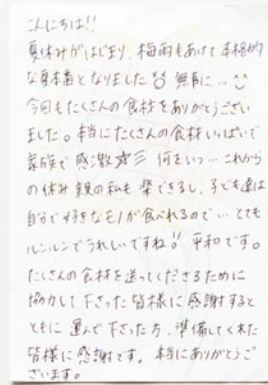 こんにちは!!
夏休みがはじまり、梅雨もあけて本格的
な夏本番となりました 無事に…
今回もたくさんの食材をありがとうござい
ました。本当にたくさんの食材いっぱいで
家族で感激 何をいつ… これから
の休み 親の私も 楽できるし、子ども達は
自分で好きなモノが食べれるので… とても
ルンルンでうれしいですね!! 平和です。
たくさんの食材を送ってくださるために
協力して下さった皆様に感謝すると
ともに 運んで下さった方、準備してくれた
皆様に感謝です。本当にありがとうご
ざいます。